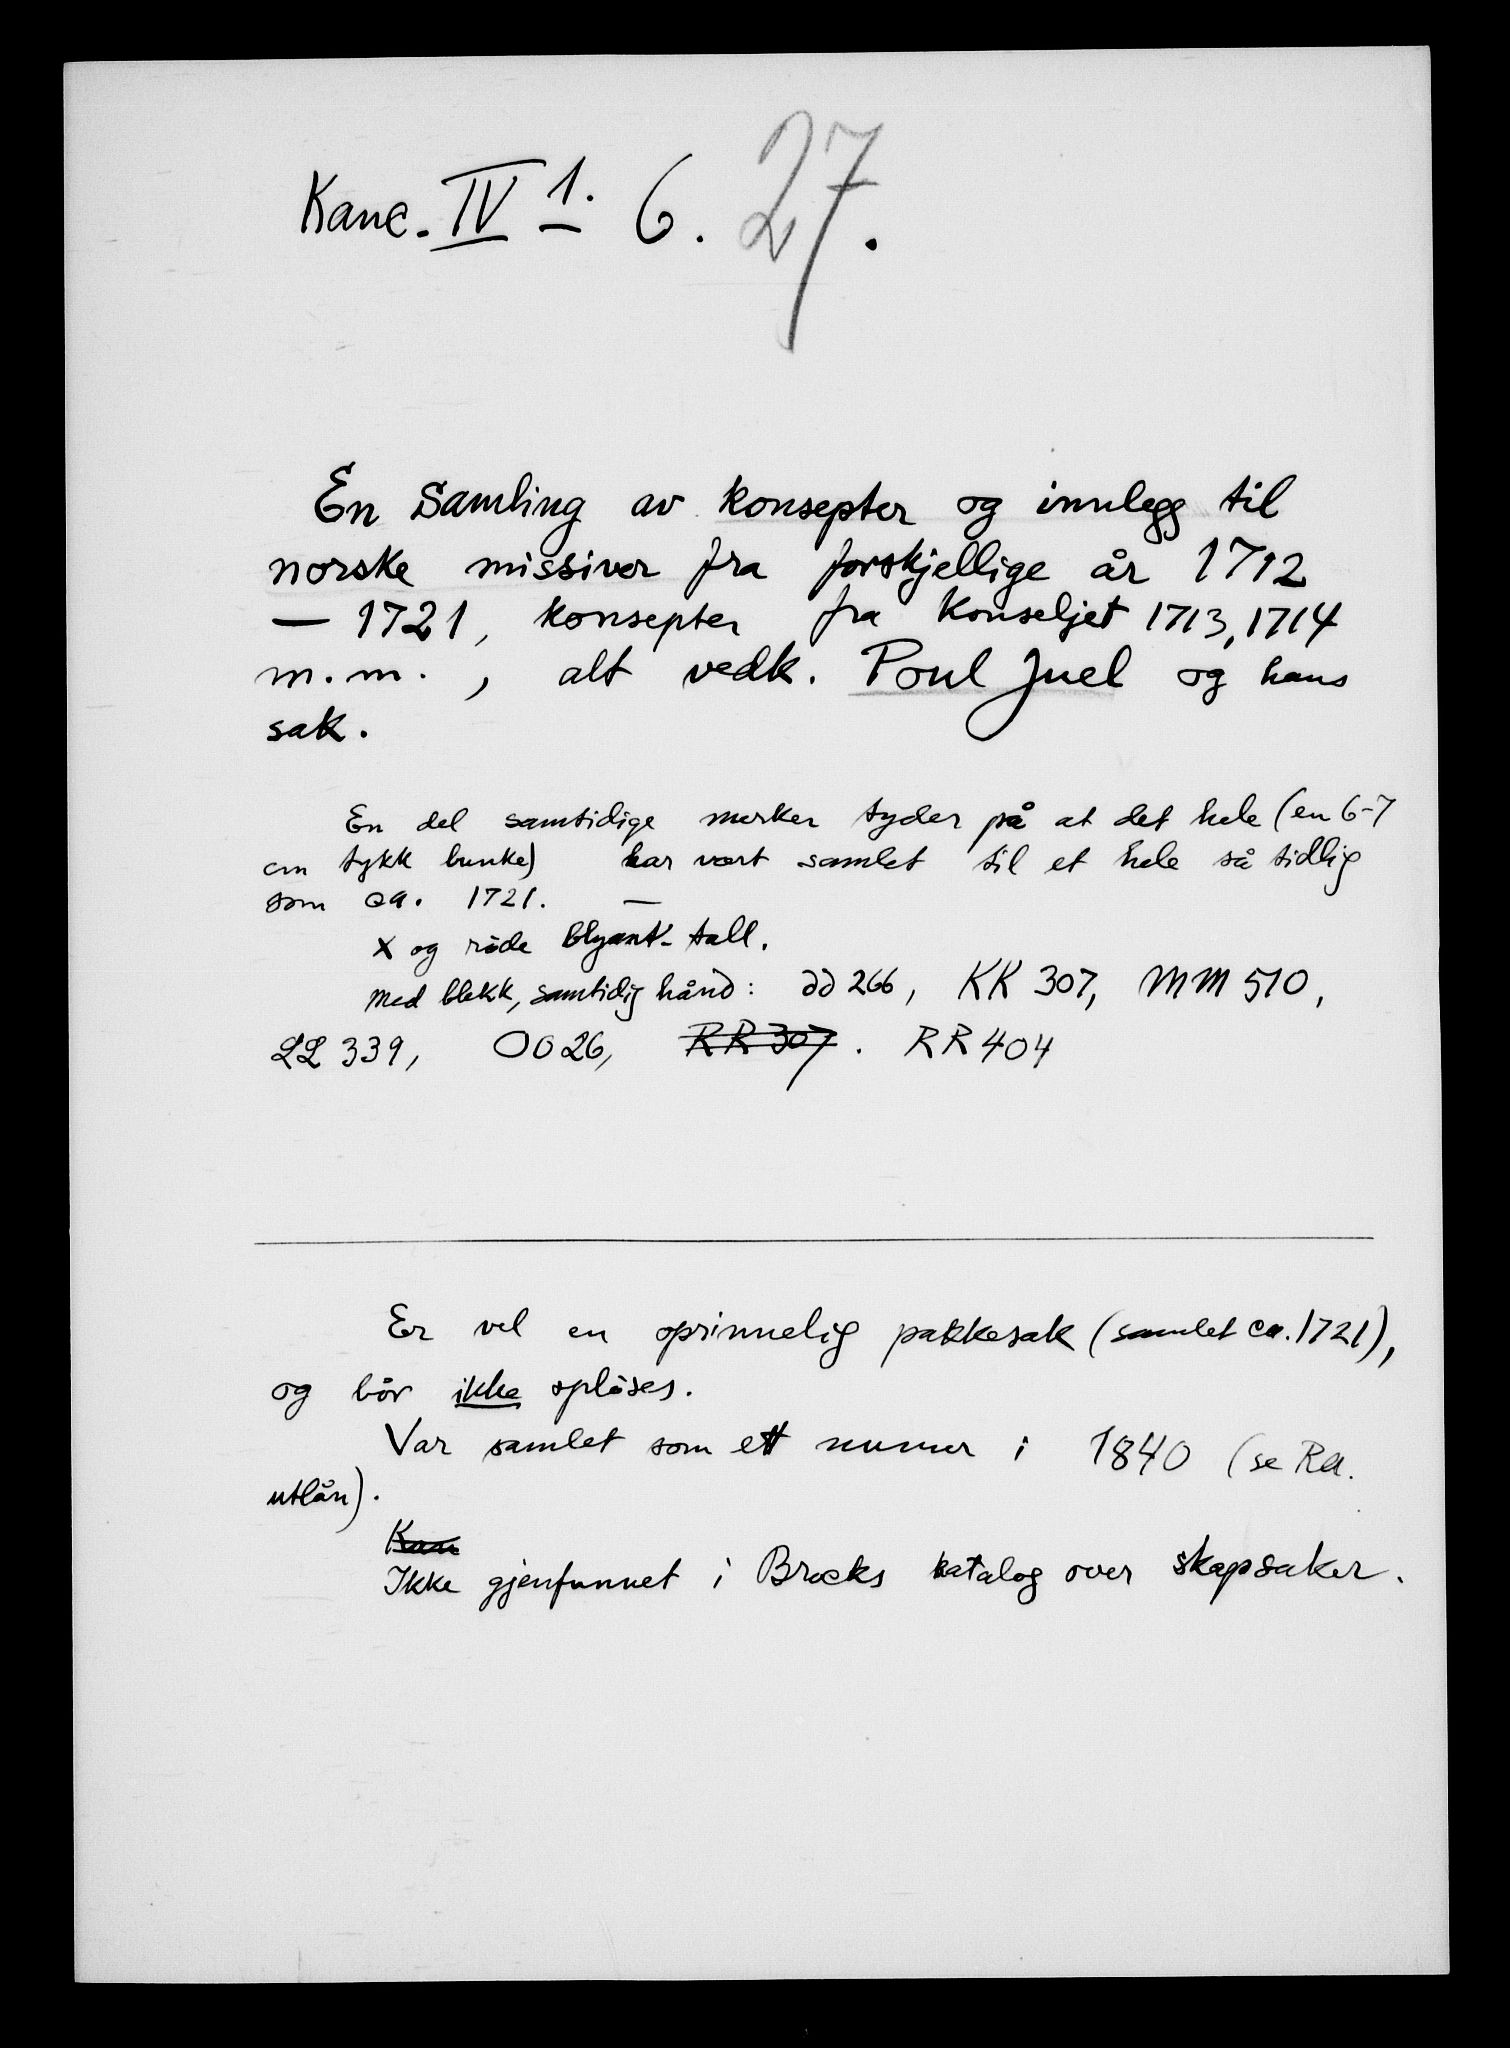 Kanc. IV 1. 6. 27.
En Samling av konsepter og innlegg til
norske missiver fra forskjellige år 1712
— 1721, konsepter fra Konseljet 1713, 1714
m.m., alt vedk. Poul Juel og hans
sak.
En del samtidige merker tyder på at det hele (en 6-7
cm tykk bunke) har vært samlet til et hele så tidlig
som ca. 1721. —
x og røde blyant-tall.
Med blekk, samtidig hånd: 266, KK 307, MM 510,
LL 339, OO 26, RR 307. RR 404
Er vel en oprinnelig pakkesak (samlet ca. 1721),
og bør ikke opløses.
Var samlet som ett numer i 1840 (se Ra.
utlån).
Ikke gjenfunnet i Brocks katalog over skapsaker.